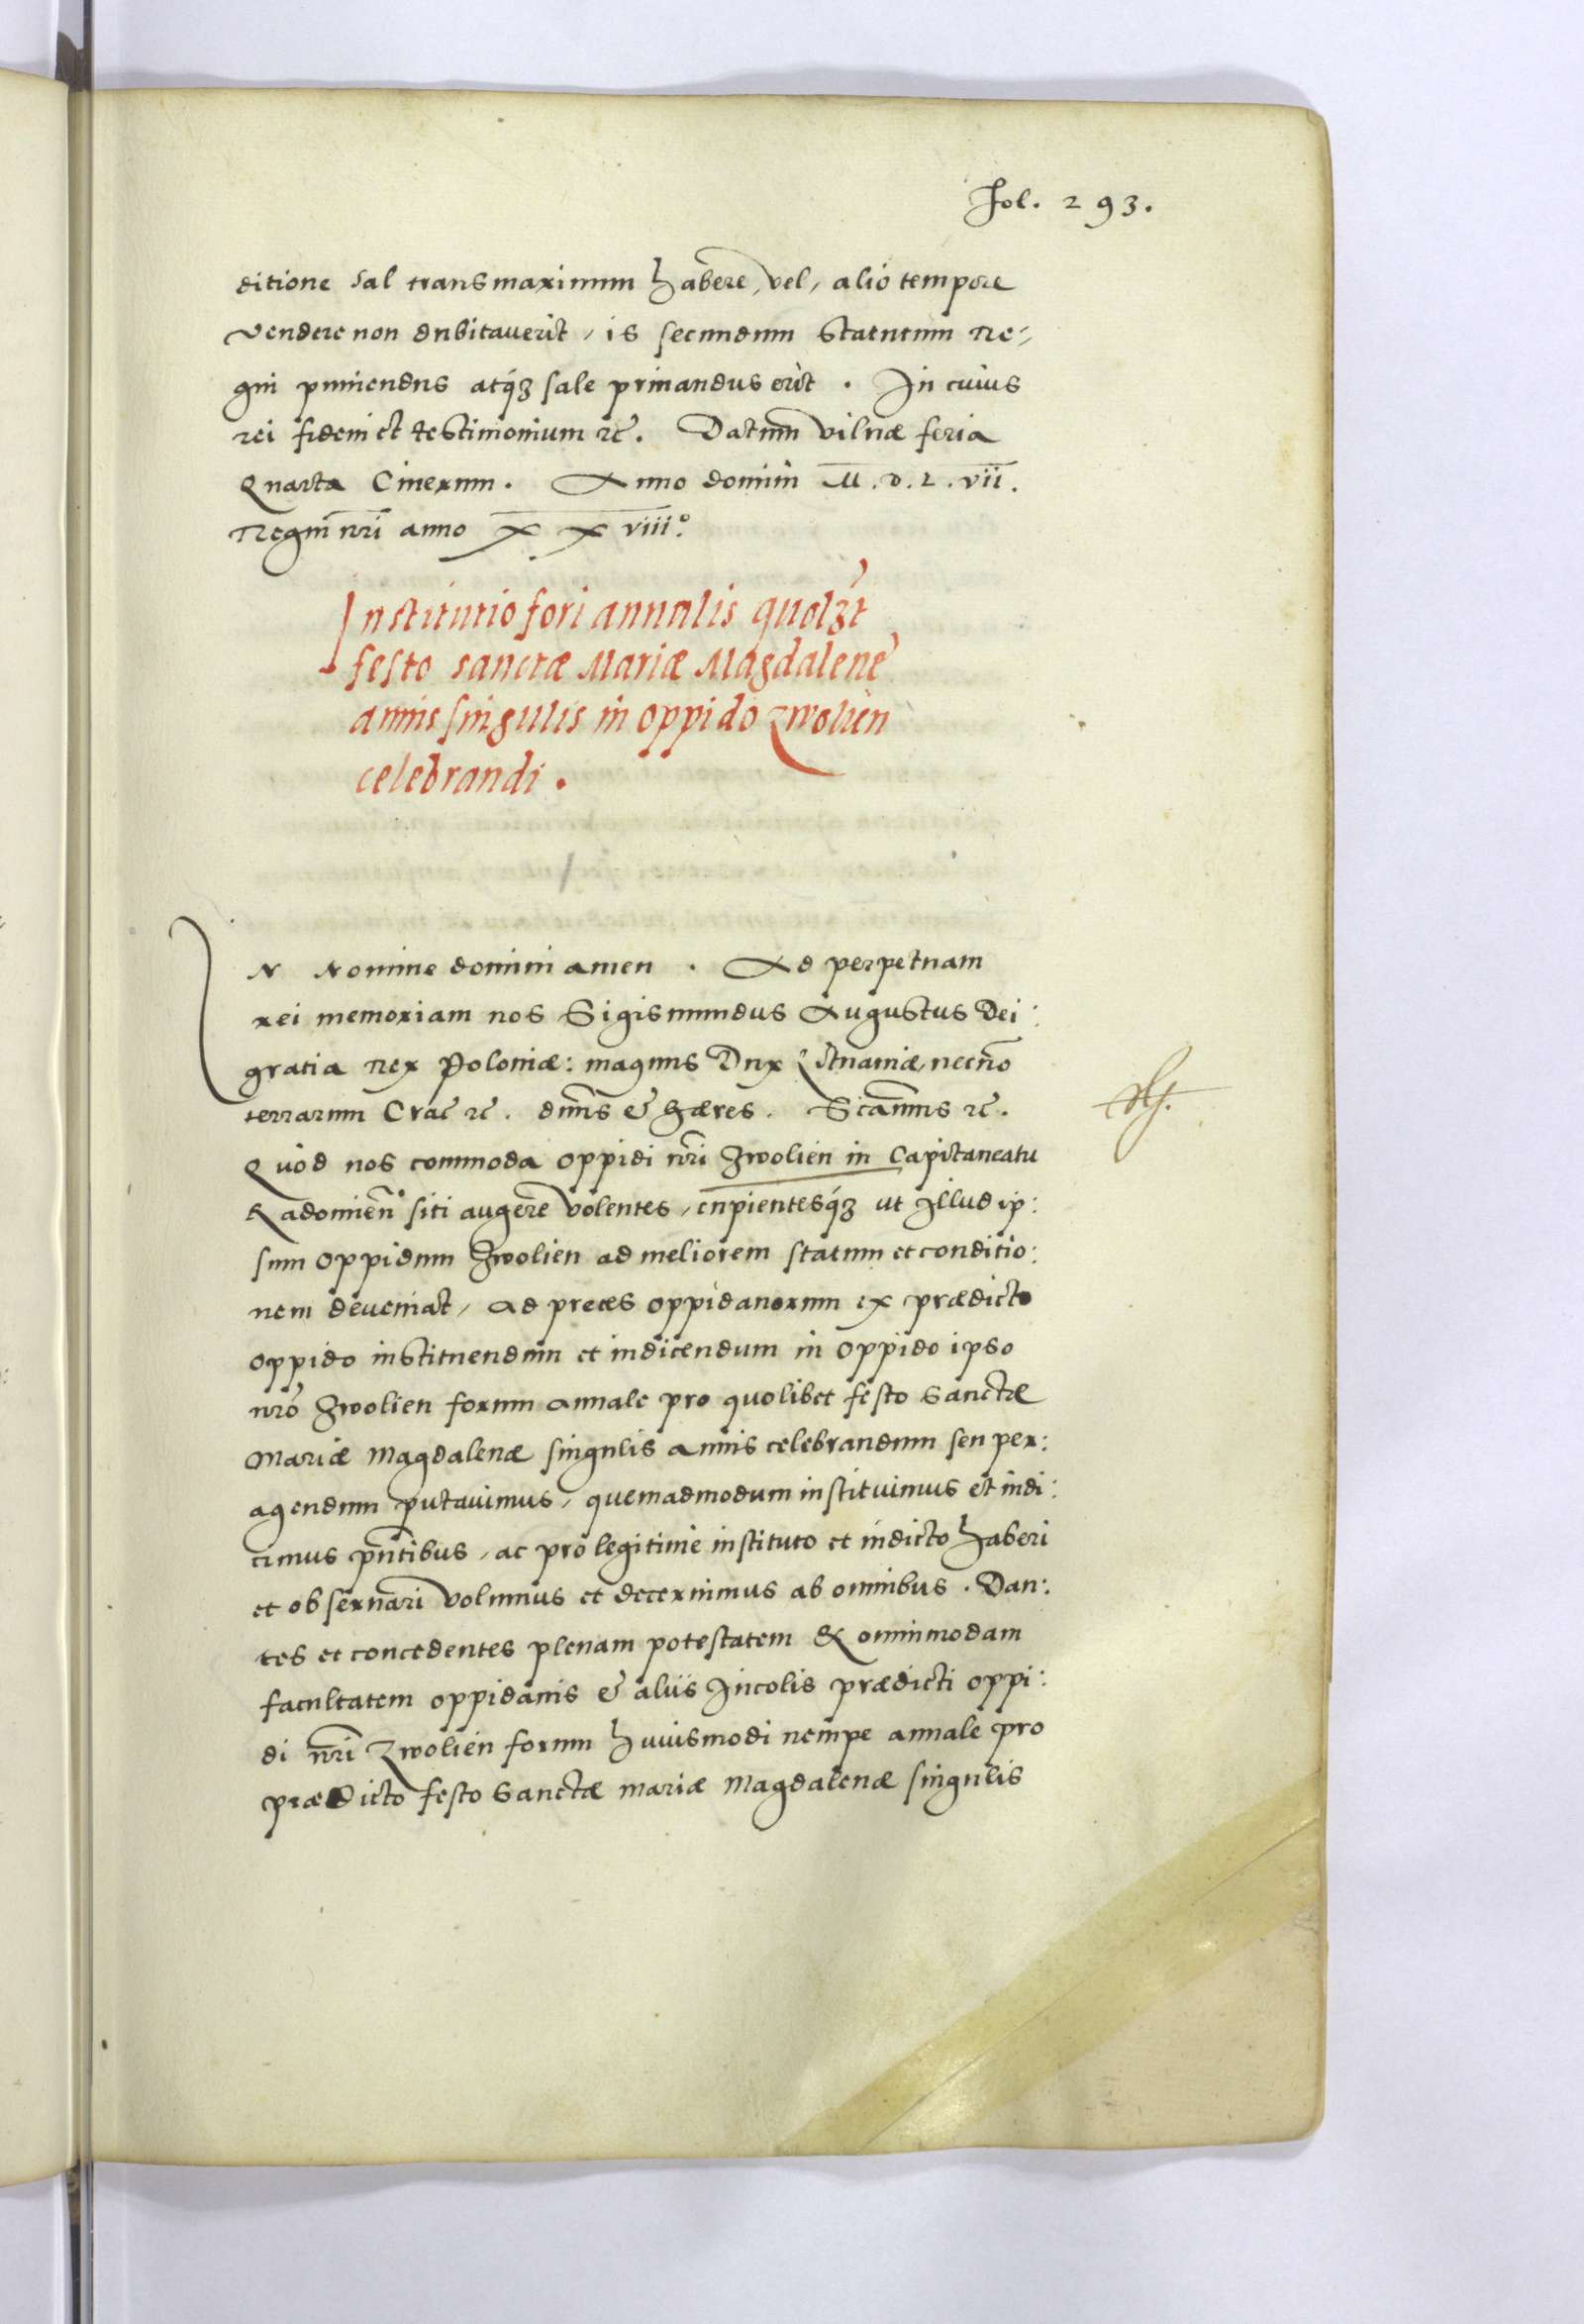 Fol. 293.
ditione sal transmarinum habere, vel, alio tempore
vendere non dubitauerit, is secundum statutum Re-
gni puniendus atq3 sale priuandus erit. In cuius
rei fidem et testimonium rc. Datum vilnæ feria
Quarta Cinerum. Anno domini M.D.L.vii.
Regni nri anno XXviii°.
Institutio fori annalis quolzt
festo sanctæ Mariæ Magdalene
annis singulis in oppido Zwolien
celebrandi.
IN Nomine domini amen. Ad perpetuam
rei memoriam nos Sigismundus Augustus Dei:
gratia Rex Poloniæ: magnus Dux Lituaniæ, necno
terrarum Crac rc. dnus & hæres. Scamus rc.
Quod nos commoda oppidi nri Zwolien in Capitaneatu
Radomien siti augere volentes, cupientesq3 ut Illud ip:
sum oppidum Zwolien ad meliorem statum et conditio:
nem deueniat, ad preces oppidanorum ex prædicto
oppido instituendum et indicendum in oppido ipso
nro Zwolien forum annale pro quolibet festo Sanctæ
Mariæ Magdalenæ singulis annis celebrandum seu per:
agendum putauimus, quemadmodum instituimus et indi:
cimus pntibus, ac pro legitime instituto et indicto haberi
et obseruari volumus et decernimus ab omnibus. Dan:
tes et concedentes plenam potestatem & omnimodam
facultatem oppidanis & aliis Incolis prædicti oppi:
di nri Zwolien forum huiusmodi nempe annale pro
prædicto festo Sanctæ Mariæ Magdalenæ singulis